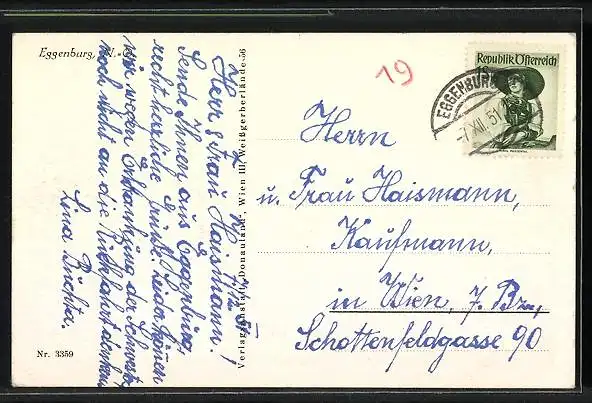 Eggenburg, N.
Herr & Frau Haismann!
Sende Ihnen aus Eggenburg
recht herzliche Grüße. Leider können
wir wegen Erkrankung der Schwester
noch nicht an die Rückfahrt denken
Nr. 3359
Verlagsanstalt „Donauland“, Wien III, Weißgerberlände 56
19
Republik Österreich
EGGENBURG
-7.XII.51
Herrn
u. Frau Haismann,
Kaufmann,
in Wien, 7. Bez.,
Schottenfeldgasse 90